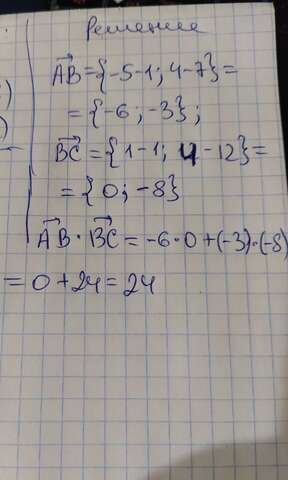 Решение
AB={-5-1; 4-7}=
={-6; -3};
BC={1-1; 4-12}=
={0; -8}
AB·BC=-6·0+(-3)·(-8)
=0+24=24